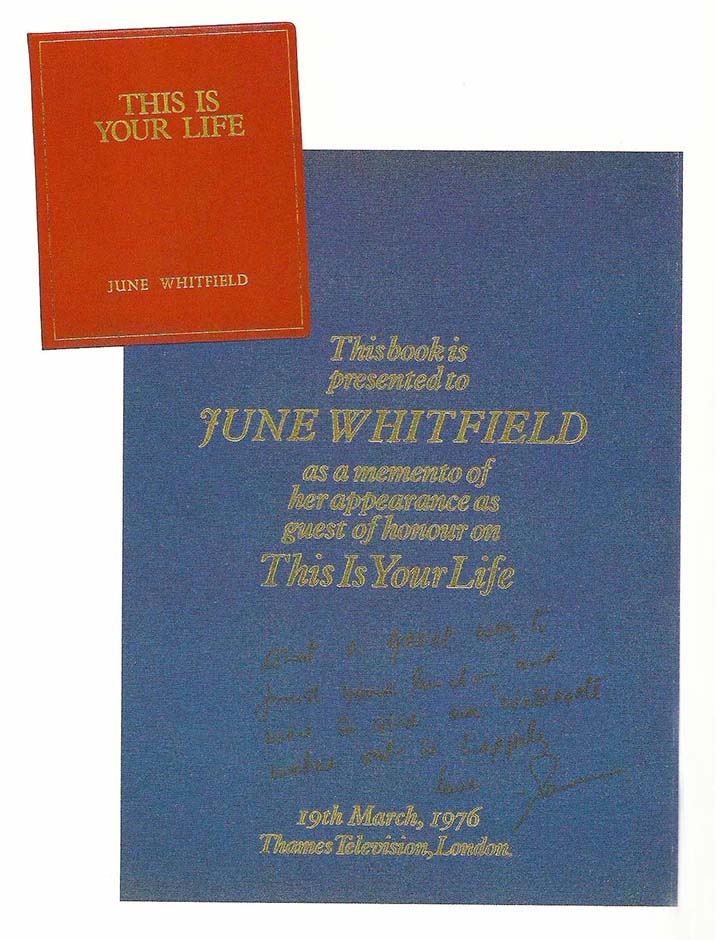 THIS IS
YOUR LIFE
JUNE WHITFIELD
This book is
presented to
JUNE WHITFIELD
as a memento of
her appearance as
guest of honour on
This Is Your Life
a great way to
and
happily
love
19th March, 1976
Thames Television, London.